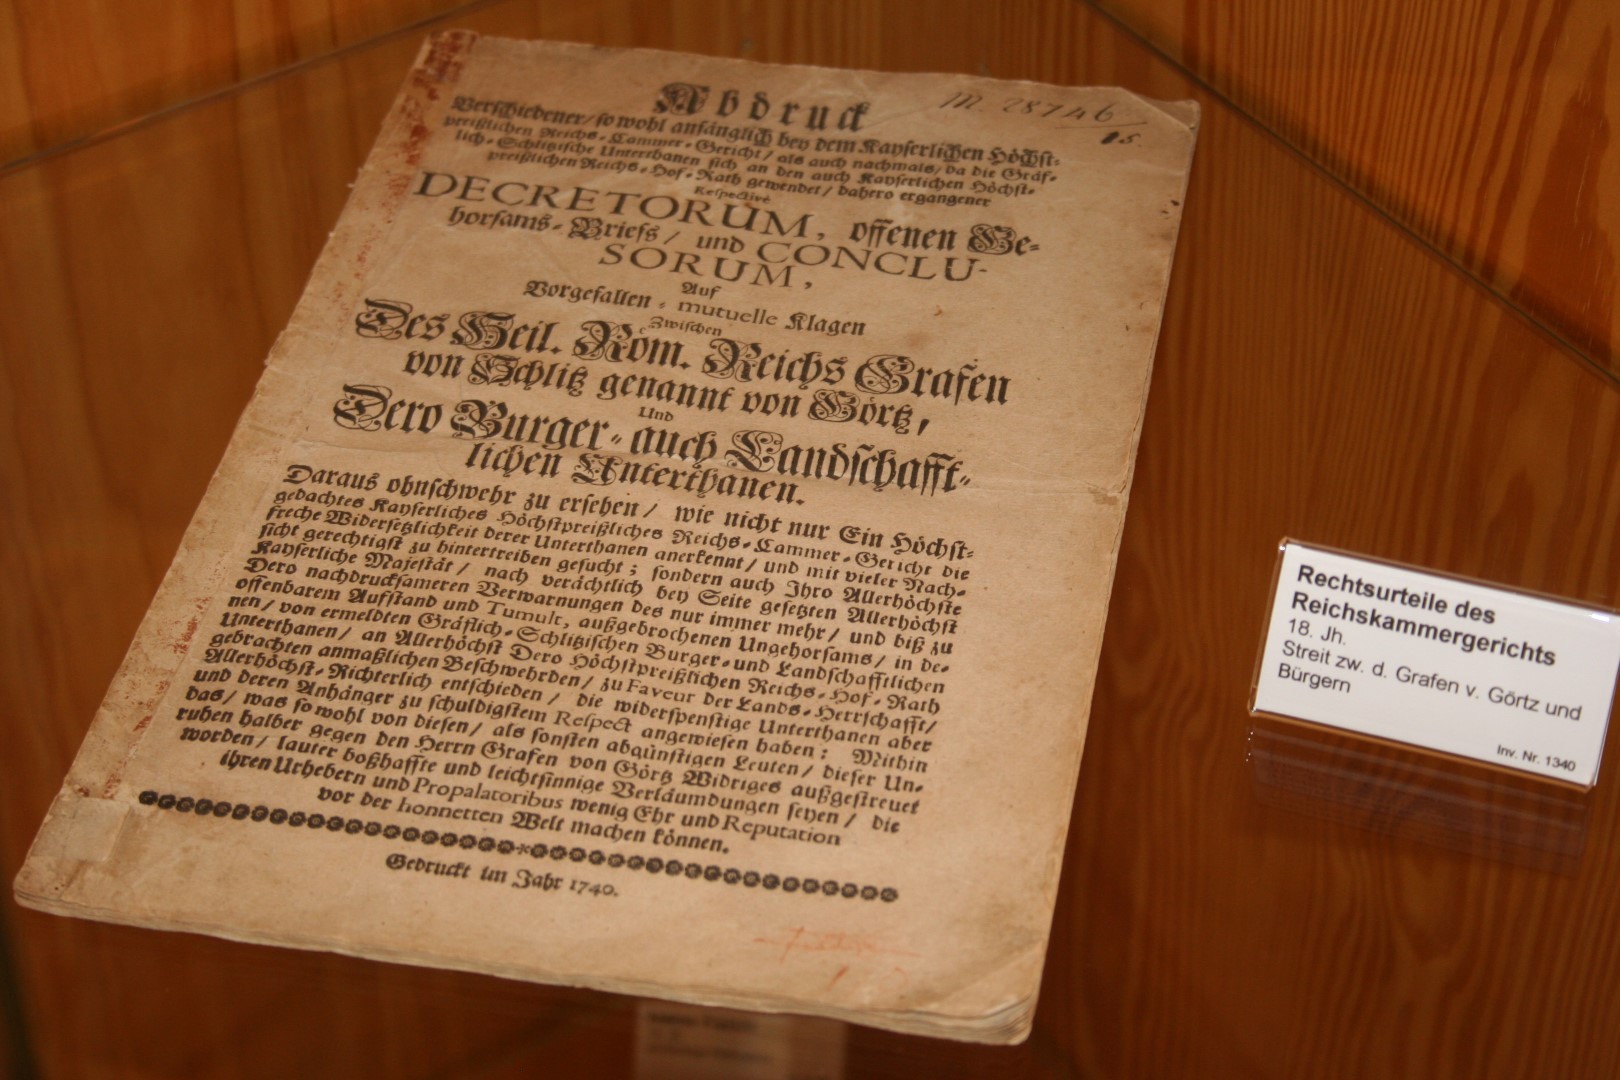 M 28746
15.
Abdruck
Verschiedener/ so wohl anfänglich bey dem Kayserlichen Höchst-
preißlichen Reichs-Cammer-Gericht/ als auch nachmals/ da die Gräf-
lich-Schlitzische Unterthanen sich an den auch Kayserlichen Höchst-
preißlichen Reichs-Hof-Rath gewendet/ dahero ergangener
Respectivè
DECRETORUM, offenen Ge-
horsams-Briefs/ und CONCLU-
SORUM,
Auf
Vorgefallen-mutuelle Klagen
Zwischen
Des Heil. Röm. Reichs Grafen
von Schlitz genannt von Görtz,
Und
Dero Burger-auch Landschafft-
lichen Unterthanen.
Daraus ohnschwehr zu ersehen/ wie nicht nur Ein Höchst-
gedachtes Kayserliches Höchstpreißliches Reichs-Cammer-Gericht die
freche Widersetzlichkeit derer Unterthanen anerkennt/ und mit vieler Nach-
sicht gerechtigst zu hintertreiben gesucht; sondern auch Ihro Allerhöchste
Kayserliche Majestät/ nach verächtlich bey Seite gesetzten Allerhöchst
Dero nachdrucksameren Verwarnungen des nur immer mehr/ und biß zu
offenbarem Aufstand und Tumult, außgebrochenen Ungehorsams/ in de-
nen/ von ermeldten Gräflich-Schlitzischen Burger-und Landschafftlichen
Unterthanen/ an Allerhöchst Dero Höchstpreißlichen Reichs-Hof-Rath
gebrachten anmaßlichen Beschwehrden/ zu Faveur der Lands-Herrschafft/
Allerhöchst-Richterlich entschieden/ die widerspenstige Unterthanen aber
und deren Anhänger zu schuldigstem Respect angewiesen haben; Mithin
das/ was so wohl von diesen/ als sonsten abgünstigen Leuten/ dieser Un-
ruhen halber gegen den Herrn Grafen von Görtz Widriges außgestreuet
worden/ lauter boßhaffte und leichtsinnige Verläumdungen seyen/ die
ihren Urhebern und Propalatoribus wenig Ehr und Reputation
vor der honnetten Welt machen können.
Gedruckt im Jahr 1740.
Rechtsurteile des
Reichskammergerichts
18. Jh.
Streit zw. d. Grafen v. Görtz und
Bürgern
Inv. Nr. 1340